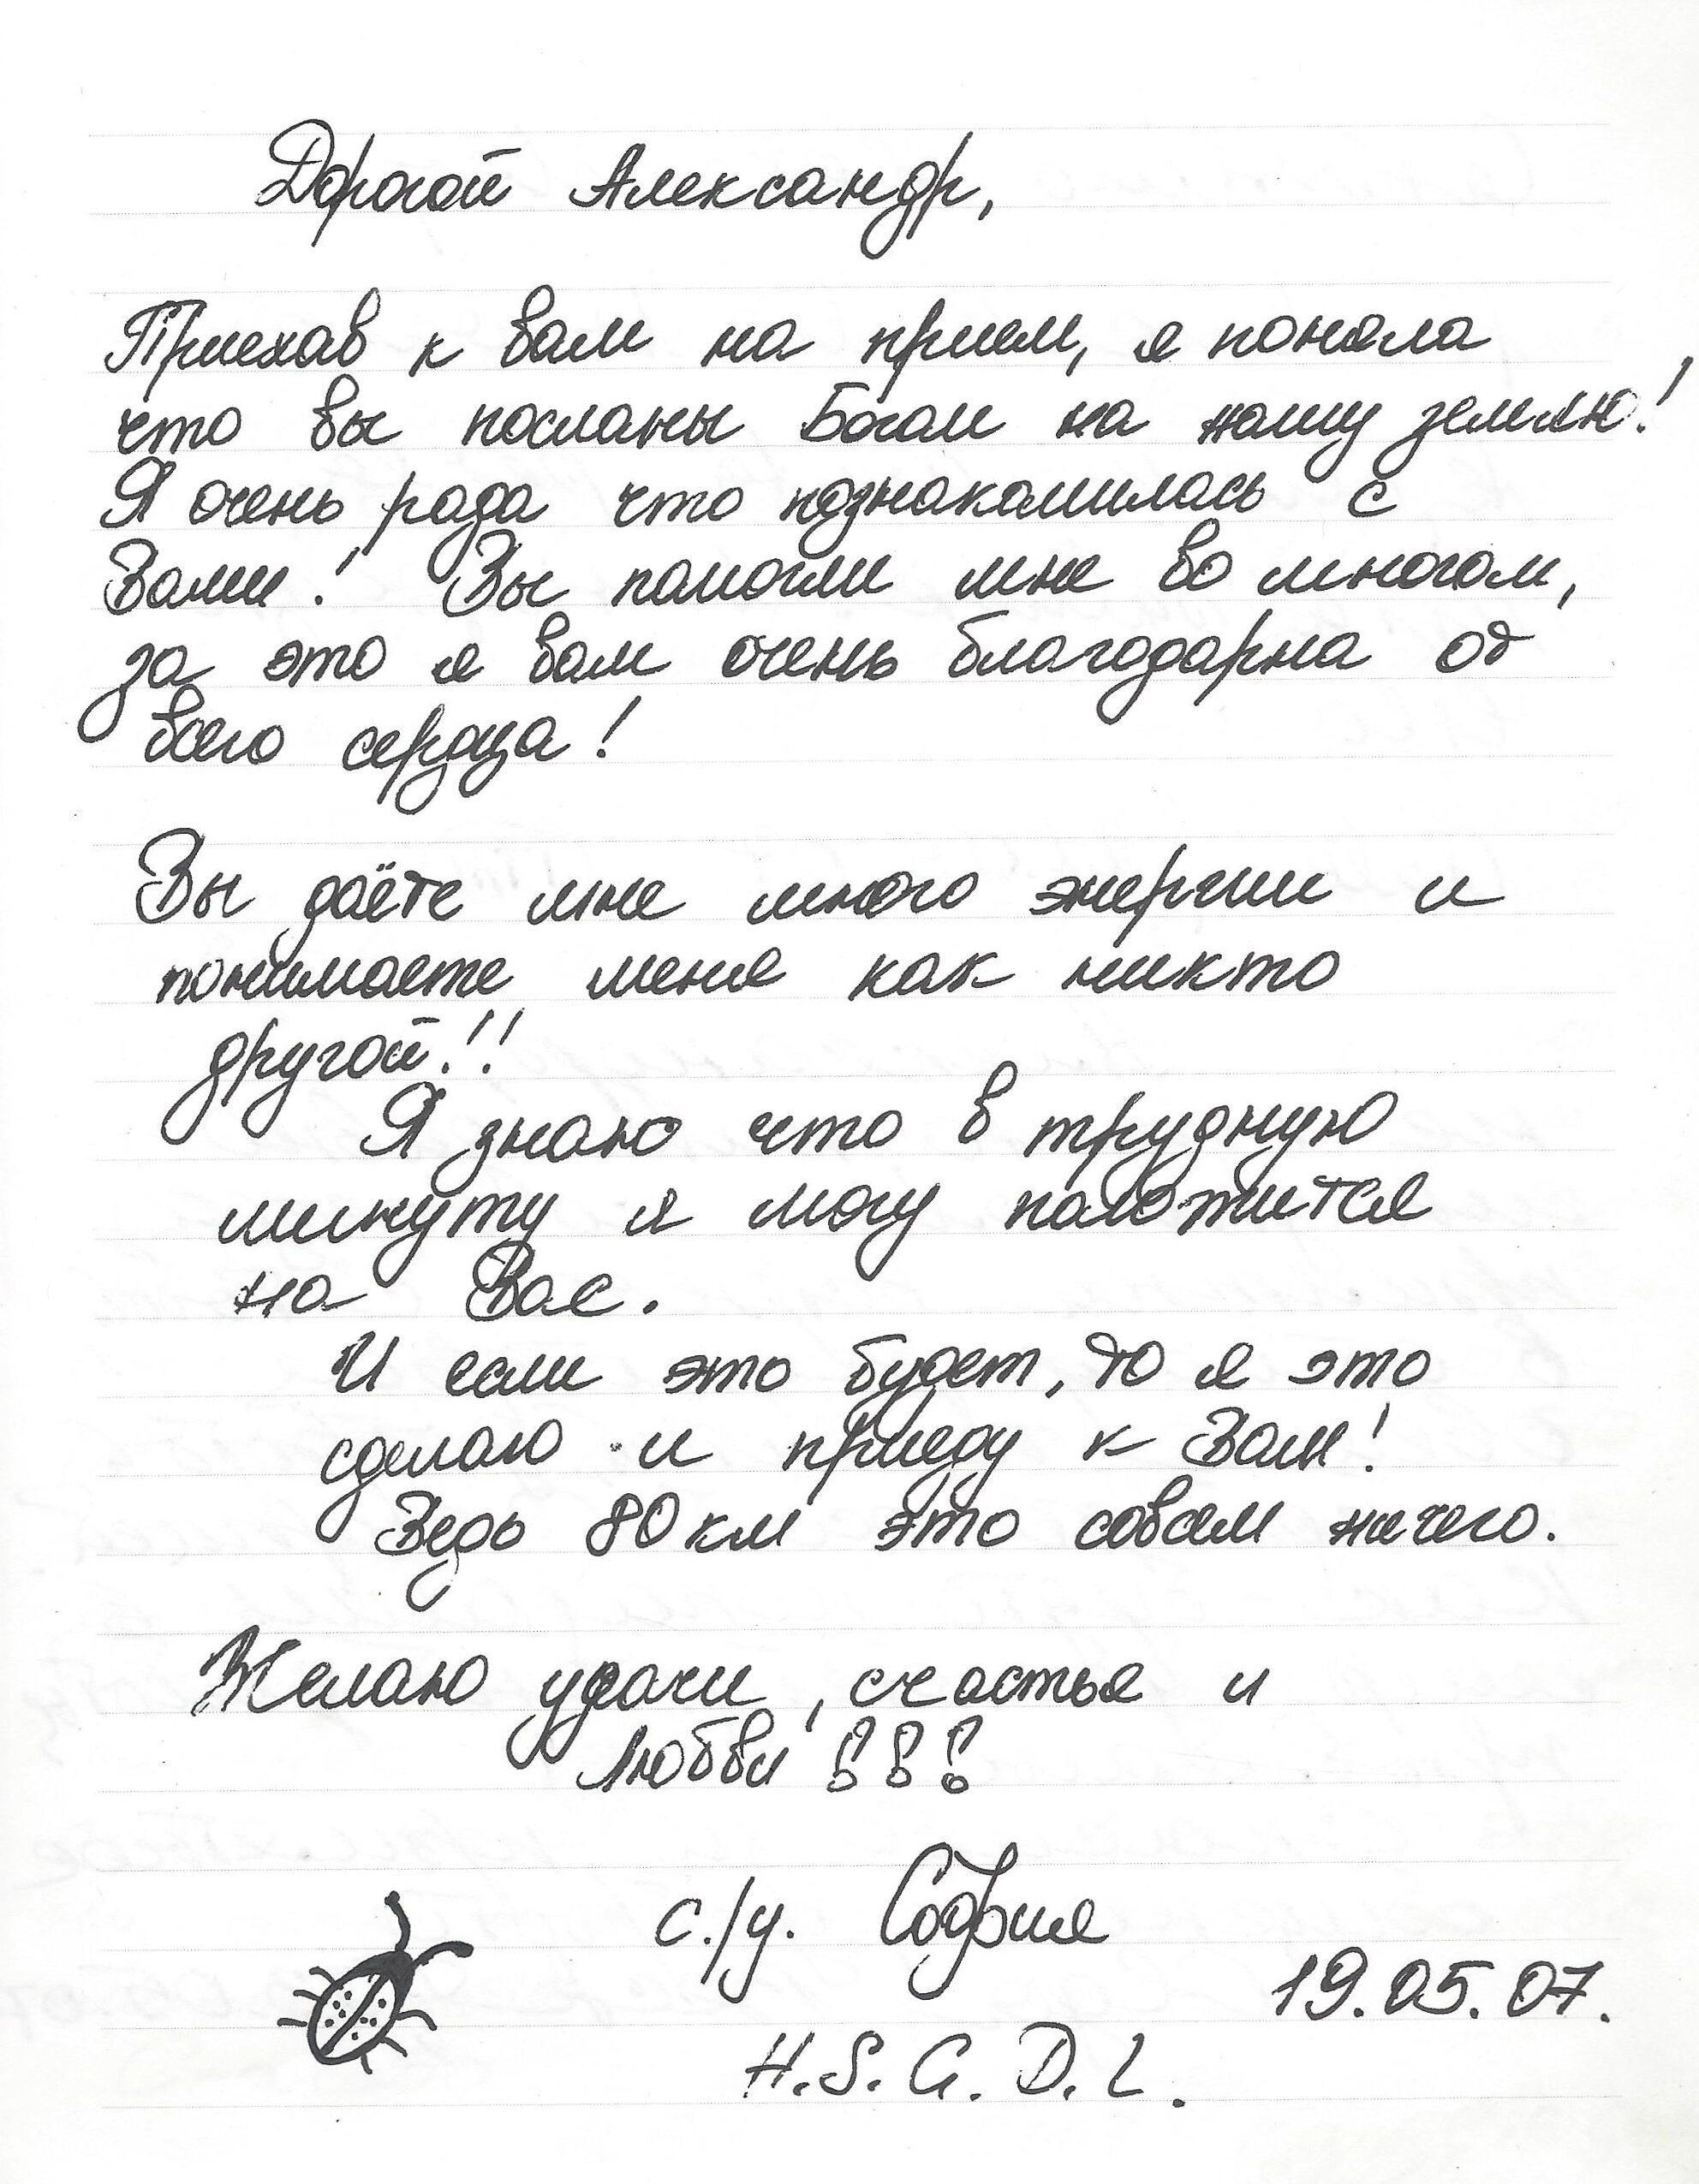 Дорогой Александр,
Приехав к вам на прием, я поняла
что вы посланы Богом на нашу землю!
Я очень рада что познакомилась с
Вами! Вы помогли мне во многом,
за это я вам очень благодарна от
всего сердца!
Вы даёте мне много энергии и
понимаете меня как никто
другой!!
Я знаю что в трудную
минуту я могу положится
на Вас.
И если это будет, то я это
сделаю и приеду к Вам!
Ведь 80 км это совсем ничего.
Желаю удачи, счастья и
любви!!!
с./у. София
19.05.07.
H.S.G.D.L.